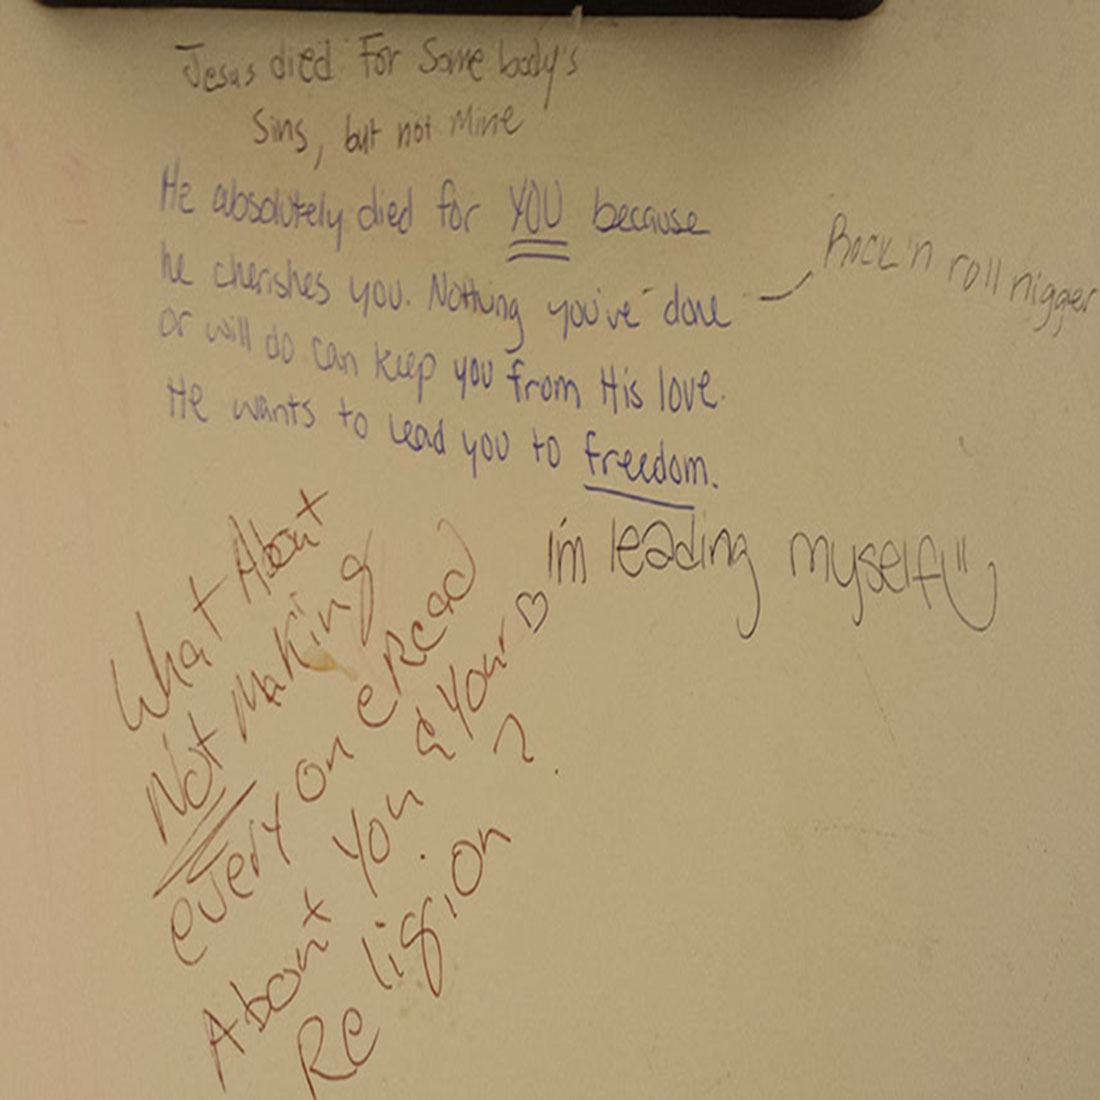 Jesus died For Somebody's
Sins, but not Mine
He absolutely died for YOU because
he cherishes you. Nothing you've done
or will do can keep you from His love.
He wants to lead you to freedom.
Rock 'n roll nigger
I'm leading myself
What About
Not Making
every one Read
About You & Your
Religion ?